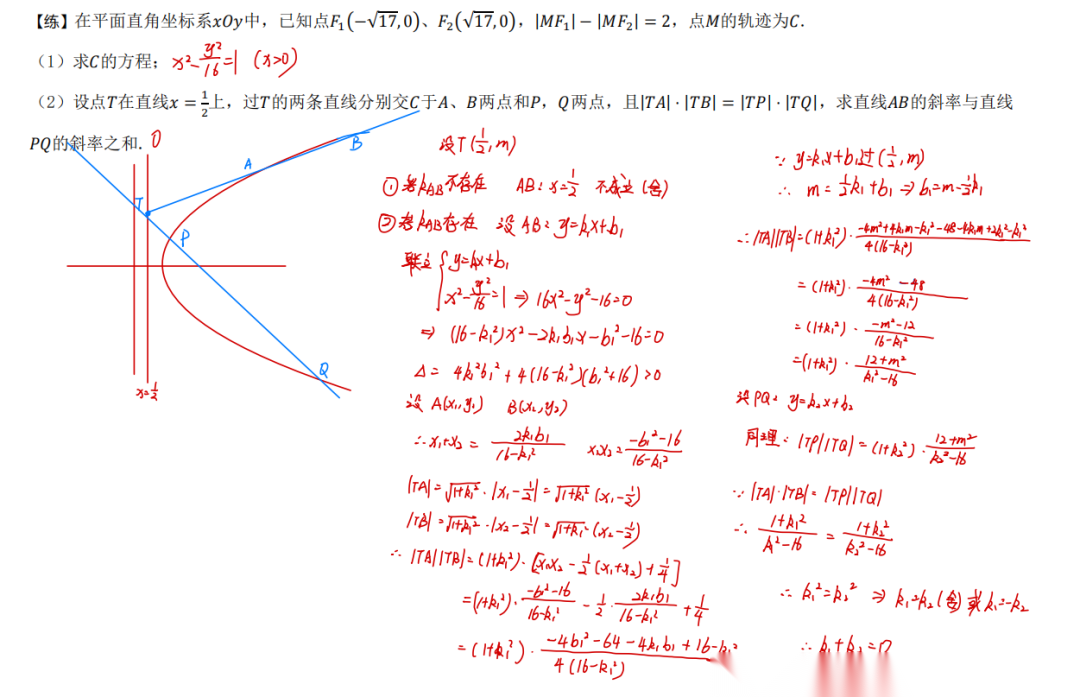 【练】在平面直角坐标系xOy中，已知点F₁(−√17,0)、F₂(√17,0)，|MF₁|−|MF₂|=2，点M的轨迹为C.
（1）求C的方程； x²-y²/16=1 (x>0)
（2）设点T在直线x=1/2上，过T的两条直线分别交C于A、B两点和P，Q两点，且|TA|·|TB|=|TP|·|TQ|，求直线AB的斜率与直线
PQ的斜率之和. 0
T
A
B
P
Q
x=1/2
设T(1/2,m)
①若kAB不存在 AB:x=1/2 不成立(舍)
②若kAB存在 设AB:y=k₁x+b₁
联立{y=k₁x+b₁
x²-y²/16=1 ⇒ 16x²-y²-16=0
⇒ (16-k₁²)x²-2k₁b₁x-b₁²-16=0
Δ= 4k₁²b₁²+4(16-k₁²)(b₁²+16)>0
设A(x₁,y₁) B(x₂,y₂)
∴x₁+x₂= 2k₁b₁/(16-k₁²) x₁x₂= (-b₁²-16)/(16-k₁²)
|TA|=√(1+k₁²)·|x₁-1/2|=√(1+k₁²)(x₁-1/2)
|TB|=√(1+k₁²)·|x₂-1/2|=√(1+k₁²)(x₂-1/2)
∴|TA||TB|=(1+k₁²)·[x₁x₂-1/2(x₁+x₂)+1/4]
=(1+k₁²)·(-b₁²-16)/(16-k₁²)-1/2·2k₁b₁/(16-k₁²)+1/4
=(1+k₁²)·(-4b₁²-64-4k₁b₁+16-k₁²)/(4(16-k₁²))
∵y=k₁x+b₁过(1/2,m)
∴m=1/2k₁+b₁⇒b₁=m-1/2k₁
∴|TA||TB|=(1+k₁²)·(-4m²+4k₁m-k₁²-48-4k₁m+2k₁²-k₁²)/(4(16-k₁²))
=(1+k₁²)·(-4m²-48)/(4(16-k₁²))
=(1+k₁²)·(-m²-12)/(16-k₁²)
=(1+k₁²)·(12+m²)/(k₁²-16)
设PQ:y=k₂x+b₂
同理:|TP||TQ|=(1+k₂²)·(12+m²)/(k₂²-16)
∵|TA|·|TB|=|TP||TQ|
∴(1+k₁²)/(k₁²-16)=(1+k₂²)/(k₂²-16)
∴k₁²=k₂²⇒k₁=k₂(舍)或k₁=-k₂
∴k₁+k₂=0